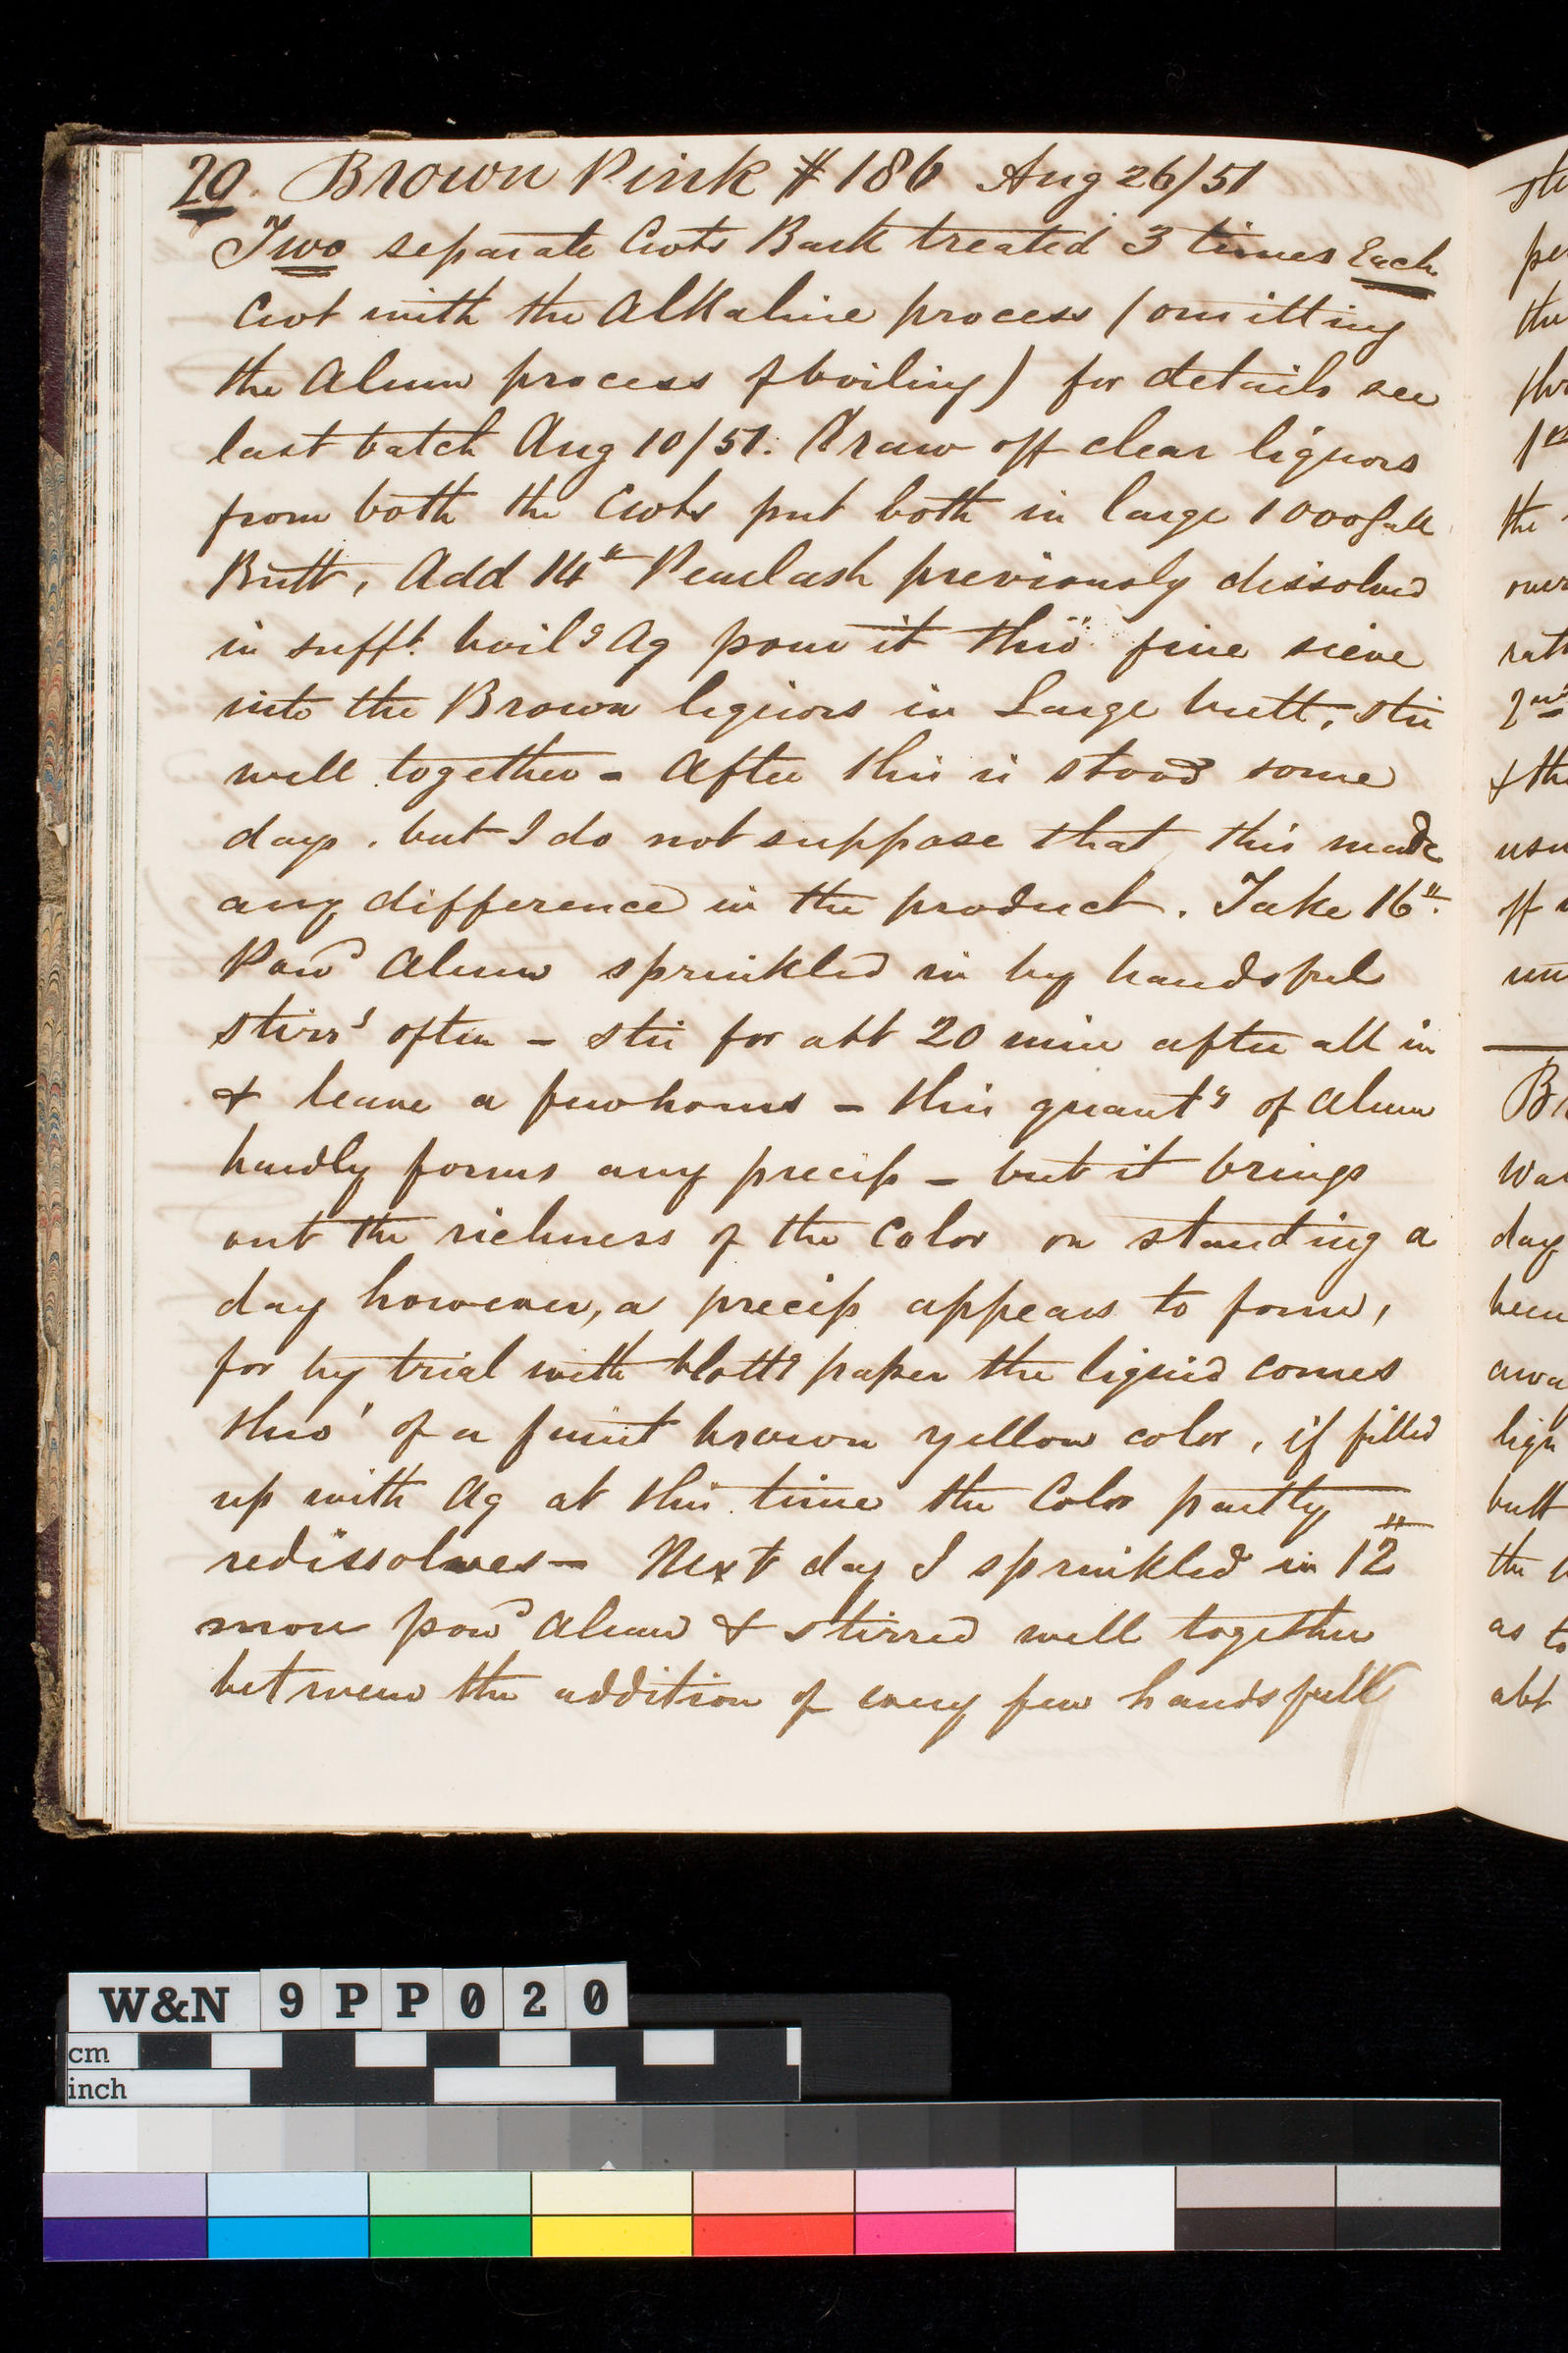 20. Brown Pink # 186 Aug 26/51
Two separate Cwts Bark treated 3 times Each
Cwt with the Alkaline process (omitting
the Alum process & boiling) for details see
last batch Aug 10/51. Draw off clear liquors
from both the Cwts put both in large 1000 Gall
Butt, Add 14 lb Pearlash previously dissolved
in sufft. boilg Aq pour it thro' fine sieve
into the Brown liquors in Large butt, stir
well together - After this is stood some
days. but I do not suppose that this made
any difference in the product. Take 16 lb.
Powd Alum sprinkled in by handsful
stirrg often - stir for abt 20 min after all in
& leave a few hours - this quanty of Alum
hardly forms any precip - but it brings
out the richness of the Color on standing a
day however, a precip appears to form,
for by trial with blottg paper the liquid comes
thro' of a faint brown yellow color, if filled
up with Aq at this time the Color partly
redissolves - Next day I sprinkled in 12 lb
more powd Alum & stirred well together
between the addition of every few handsfull
W&N 9PP020
cm
inch